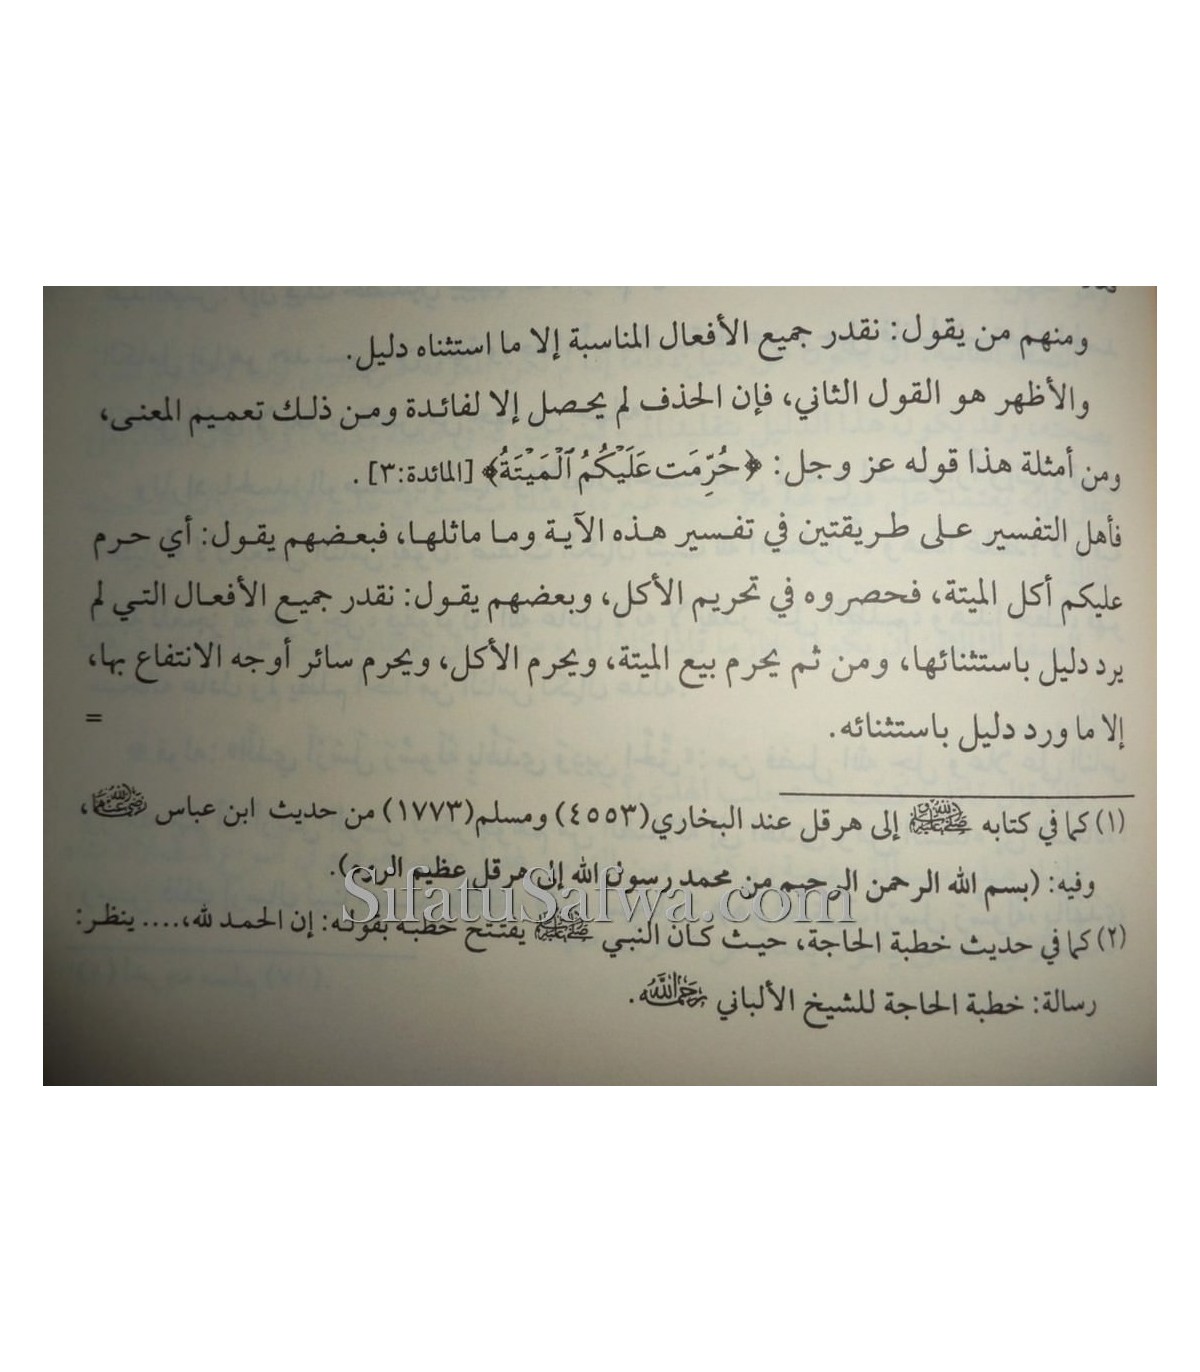 ومنهم من يقول: نقدر جميع الأفعال المناسبة إلا ما استثناه دليل.
والأظهر هو القول الثاني، فإن الحذف لم يحصل إلا لفائدة ومن ذلك تعميم المعنى،
ومن أمثلة هذا قوله عز وجل: ﴿حُرِّمَت عَلَيْكُمُ ٱلْمَيْتَةُ﴾ [المائدة:٣].
فأهل التفسير على طريقتين في تفسير هذه الآية وما ماثلها، فبعضهم يقول: أي حرم
عليكم أكل الميتة، فحصروه في تحريم الأكل، وبعضهم يقول: نقدر جميع الأفعال التي لم
يرد دليل باستثنائها، ومن ثم يحرم بيع الميتة، ويحرم الأكل، ويحرم سائر أوجه الانتفاع بها،
إلا ما ورد دليل باستثنائه. =
(١) كما في كتابه ﷺ إلى هرقل عند البخاري(٤٥٥٣) ومسلم(١٧٧٣) من حديث ابن عباس رضي الله عنهما،
وفيه: (بسم الله الرحمن الرحيم من محمد رسول الله إلى هرقل عظيم الروم).
SifatuSafwa.com
(٢) كما في حديث خطبة الحاجة، حيث كان النبي ﷺ يفتتح خطبه بقوله: إن الحمد لله،.... ينظر:
رسالة: خطبة الحاجة للشيخ الألباني رحمه الله.